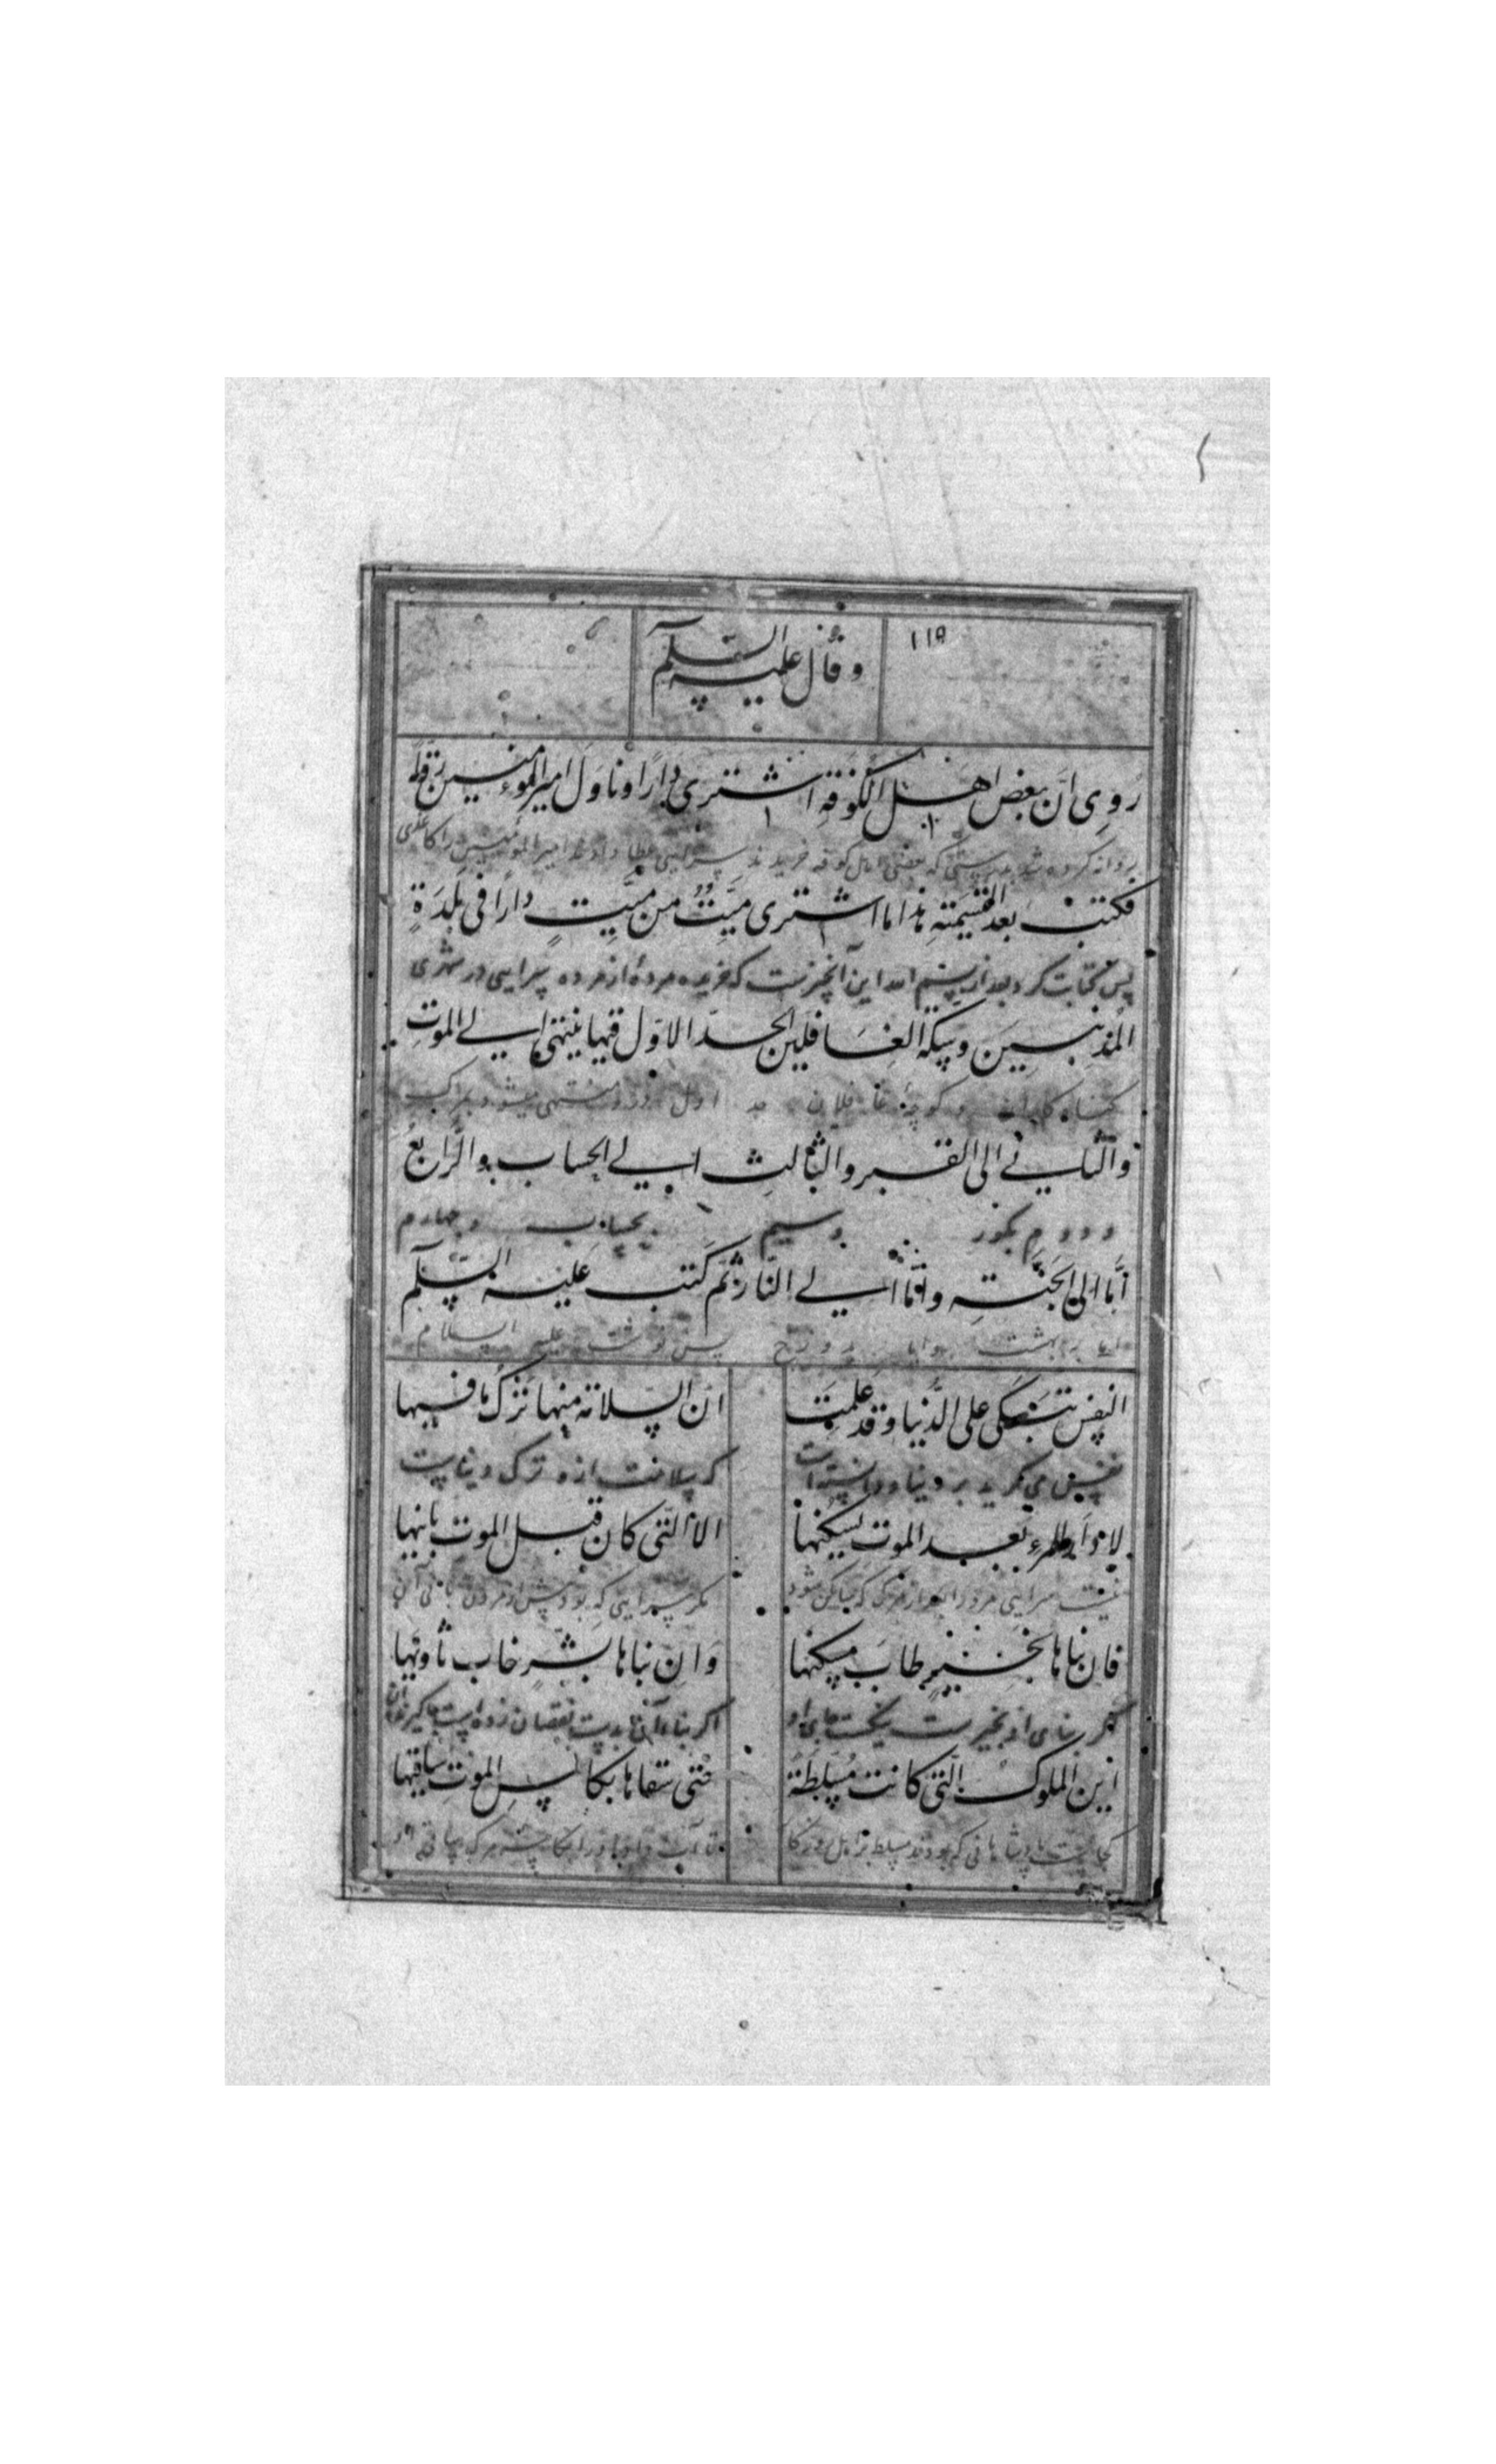 ١١٥
وقال علیه السلم
رُوِی انّ بعض اهل الکوفةِ اشتری دارًا وناوَلَ امیر المؤمنین رقعة
روانه کرده شد بدرستی که بعضی اهل کوفه خریدند سرایی عطا داد امیر المومنین را کاغذی
فکتب بعد القسیمتهِ هذا ما اشتری میّتٌ من میّتٍ دارًا فی بلدَةٍ
پس کتابت کرد بعد از بسم الله این آنچیزست که خریده مردۀ از مرده سرایی در شهری
المُذنبین وسکة الغافلین الحد الاوّل فیها ینتهی الی الموتِ
کناه کاران و کوچۀ غافلان حد اول درو منتهی میشود بمرک
والثانی الی القبر والثالثِ الی الحساب والرّابعُ
و دووم بکور و سیم بحساب و چهارم
اِمّا الی الجنّتهِ وامّا الی النّار ثم کتب علیه السلم
اما به بهشت و اما به دوزخ پس نوشت علیه السلام
النفس تبکی علی الدُّنیا وقد علمِت انّ السلامة منها ترکُ ما فیها
نفس می کرید بر دنیا و دانسته است که سلامت ازو ترک دنیاست
لا دار للمرءِ بعد الموت یسکنها الا التی کان قبل الموت بانیها
نیست سرایی مرد را بعد از مرک که ساکن شود مکر سرایی که بود پیش از مردن بانی آن
فان بناها بخیرٍ طابَ مسکنها وان بناها بشرٍّ خاب ثاویها
کر بنای او بخیرست نیکست جای او اکر بناء آن بدست نقصان زده است
این الملوک التی کانت مسلطة حتی سقاها بکاس الموت ساقیها
کجاست پادشاهانی که بودند مسلط